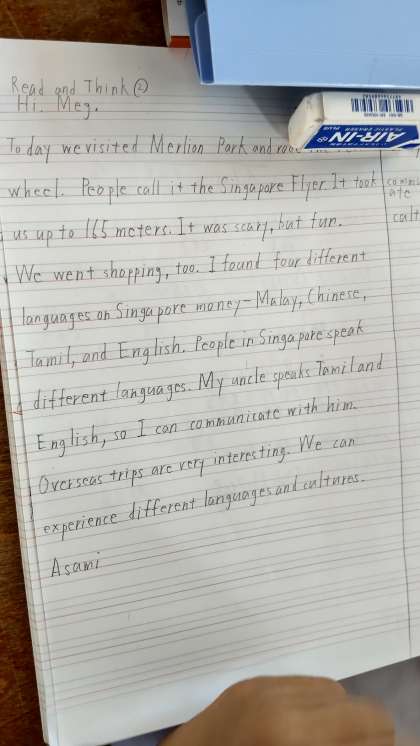 Read and Think ②
Hi, Meg.
Today we visited Merlion Park and
wheel. People call it the Singapore Flyer. It took
us up to 165 meters. It was scary, but fun.
We went shopping, too. I found four different
languages on Singapore money - Malay, Chinese,
Tamil, and English. People in Singapore speak
different languages. My uncle speaks Tamil and
English, so I can communicate with him.
Overseas trips are very interesting. We can
experience different languages and cultures.
Asami
ate
cult
AIR-IN
PLASTIC ERASER